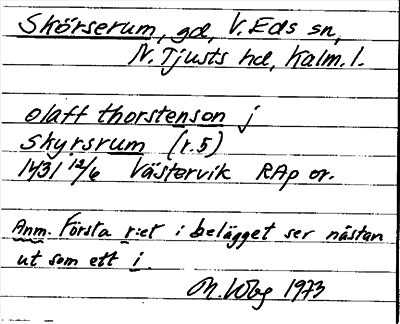 Skörserum, gd, V. Eds sn,
N. Tjusts hd, Kalm. l.
olaff thorstenson j
Skyrsrum (r. 5)
1431 12/6 Västervik RAp or.
Anm. Första r:et i belägget ser nästan
ut som ett i.
1973